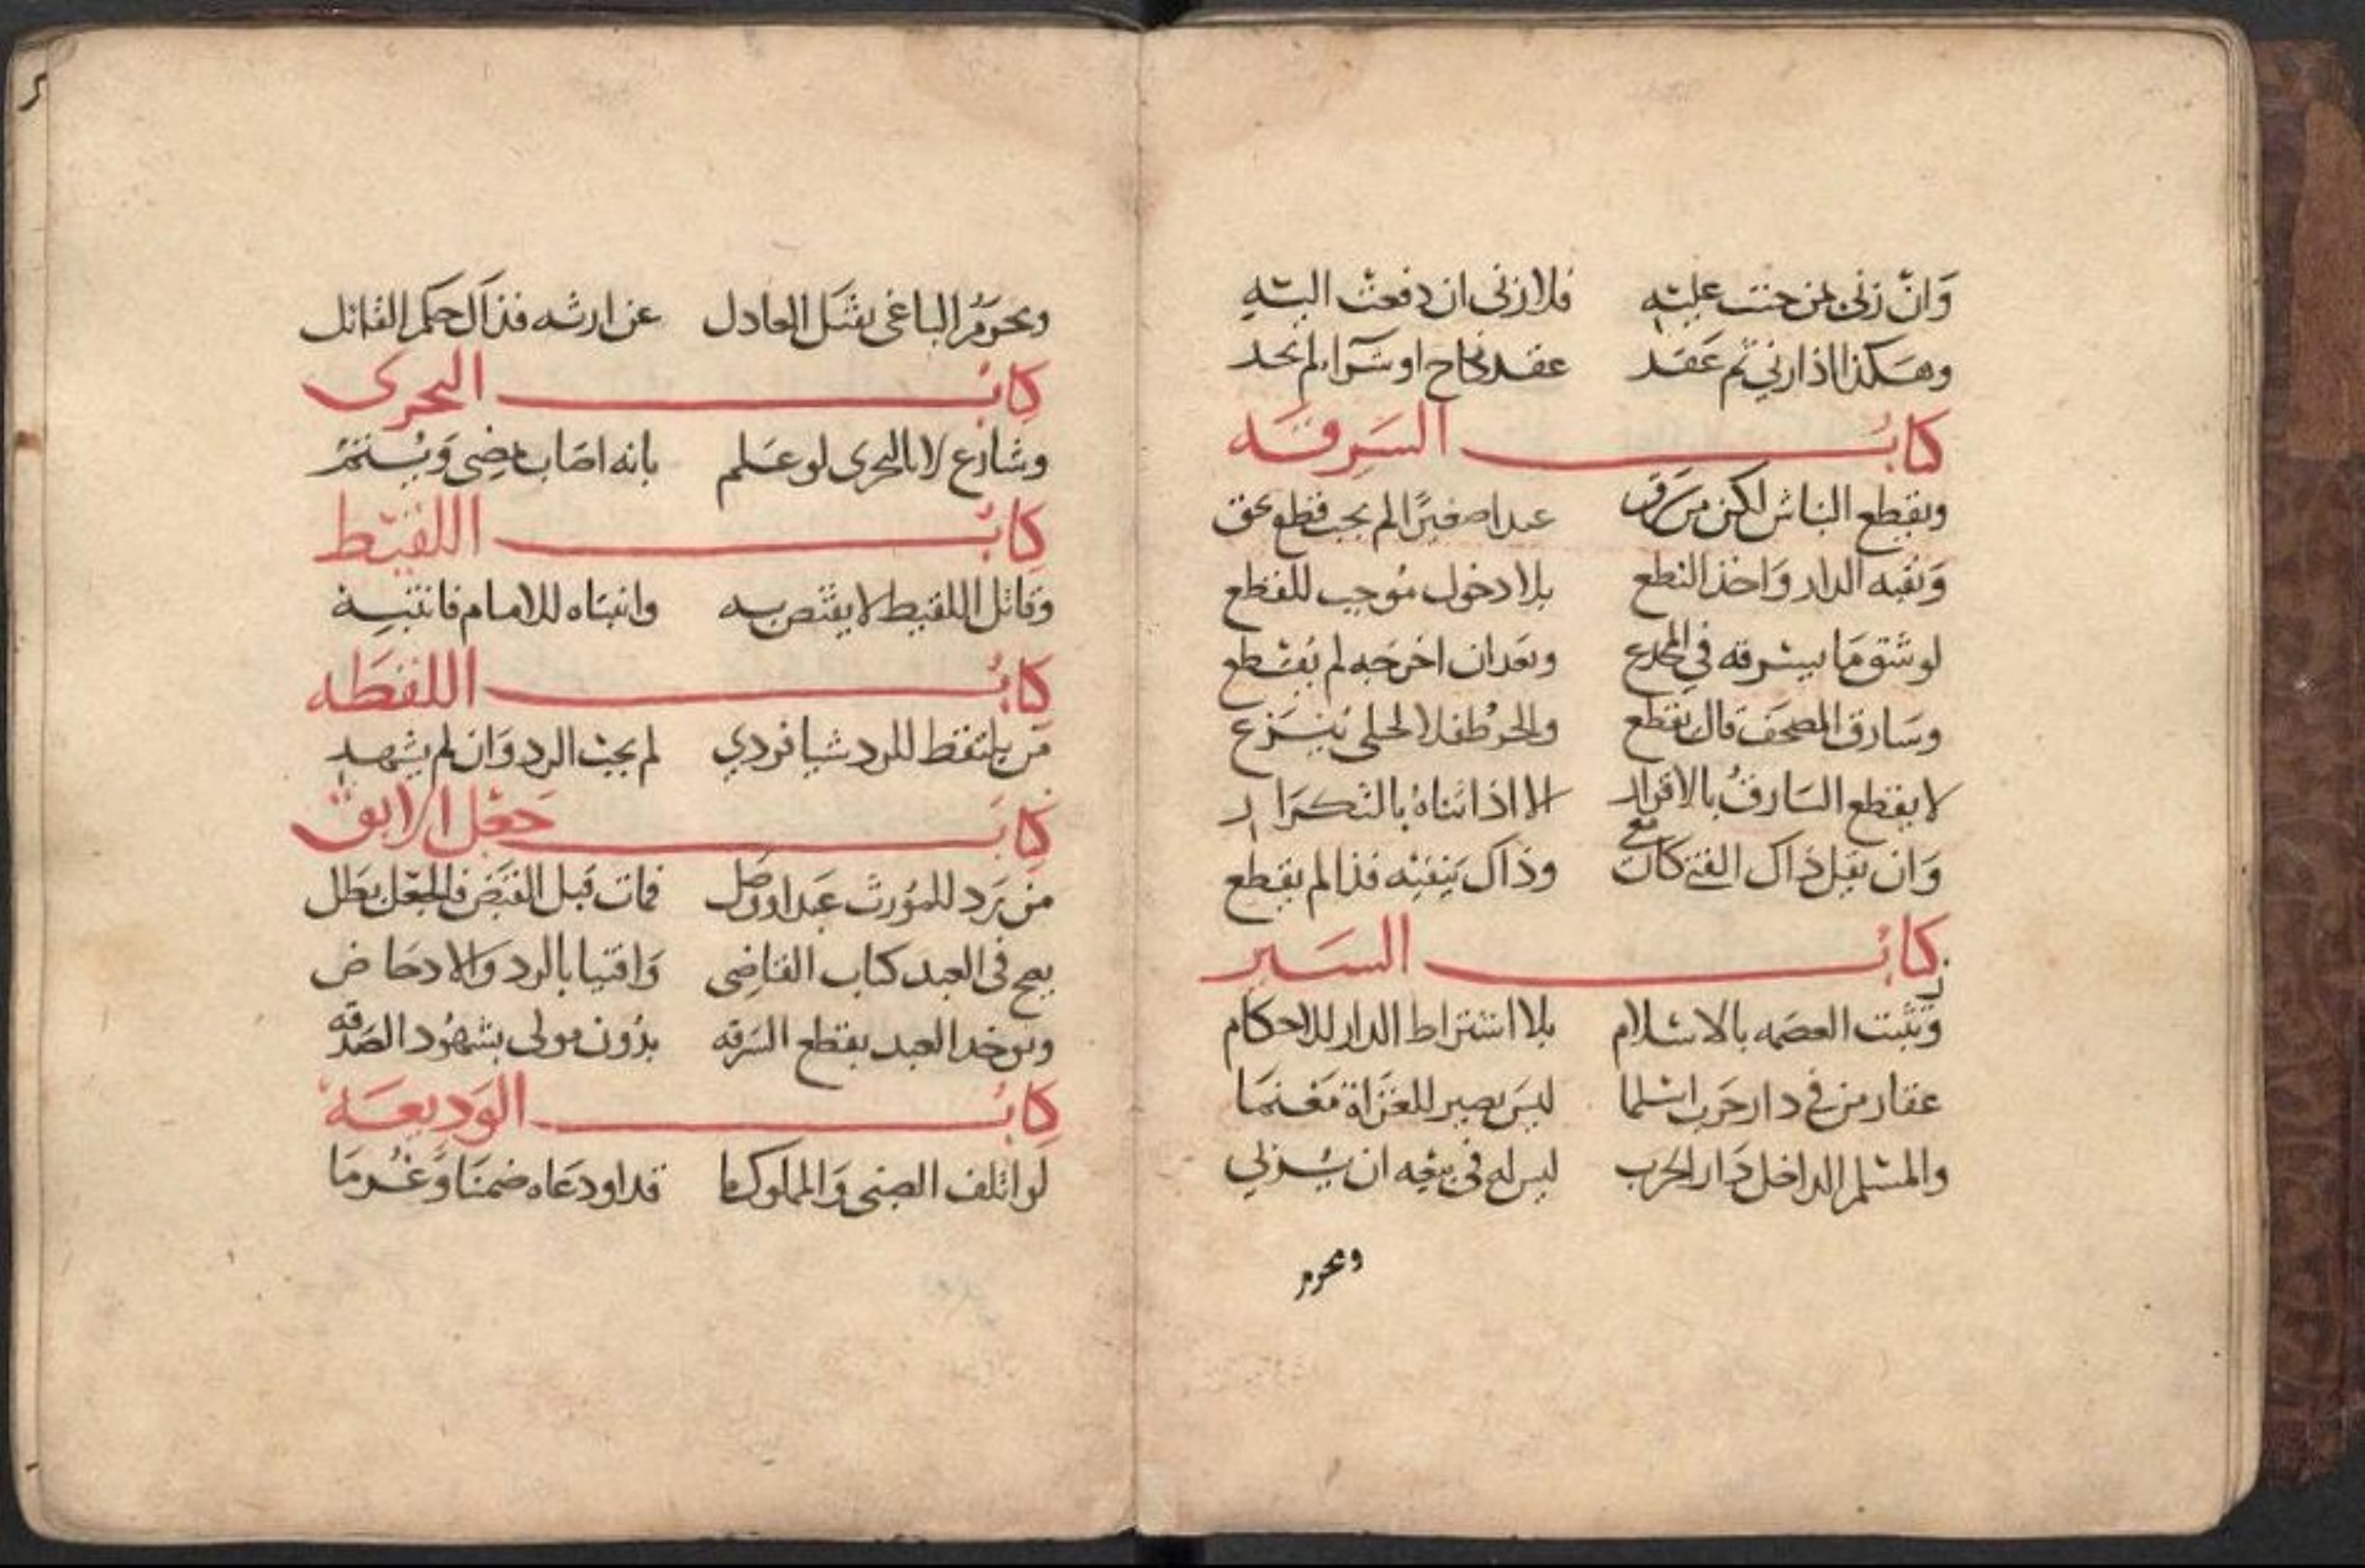 وَانّ زنى بمن جنت عليه فلا زنى ان دفعت اليه
وهكذا اذا زني ثم عقد عقد نكاح او شرا لم يحد
كتاب السرقه
ويقطع النباش لكن من سرق عبدا صغيرا لم يجب قطع بحق
ونقبه الدار واخذ النطع بلا دخول موجب للقطع
لو شق ما يسرقه في المخدع وبعد ان اخرجه لم يقطع
وسارق المصحف قال يقطع والحر طفلا لحلى ينزع
لا يقطع السارق بالاقرار الا اذا اثناه بالتكرار
وان يقل ذاك الفتى كان معي وذاك ينفيه فذا لم يقطع
كتاب السير
وتثبت العصمه بالاسلام بلا اشتراط الدار للاحكام
عقار من في دار حرب اسلما ليس يصير للغزاة مغنما
والمسلم الداخل دار الحرب ليس له في بيعه ان يربي
ويحرم
ويحرم الباغي بقتل العادل عن ارثه فذاك حكم القاتل
كتاب التحرى
وشارع لا بالتحرى لو علم بانه اصاب يمضى ويستتم
كتاب اللقيط
وقاتل اللقيط لا يقتص به وافتياه للامام فانتبه
كتاب اللقطه
من يلتقط للرد شيا فردي لم يجب الرد وان لم يشهد
كتاب جعل الابق
من يرد للمورث عبدا ووصل فمات قبل القبض فالجعل بطل
يصح في العبد كتاب القاضى وافتيا بالرد والادحاض
ويوخذ العبد بقطع السرقه بدون مولى بشهود الصدقه
كتاب الوديعة
لو اتلف الصبى والمملوك ما قد اودعاه ضمنا وغرما